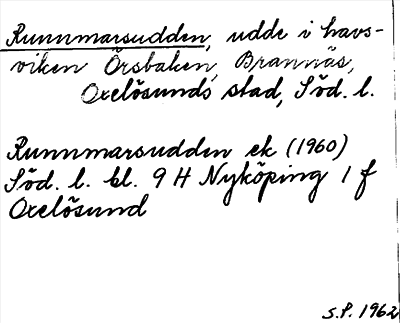 Runnmarsudden, udde i havs-
viken Örsbaken, Brannäs,
Oxelösunds stad, Söd. l.
Runnmarsudden ek (1960)
Söd. l. bl. 9 H Nyköping 1 f
Oxelösund
S.P. 1962